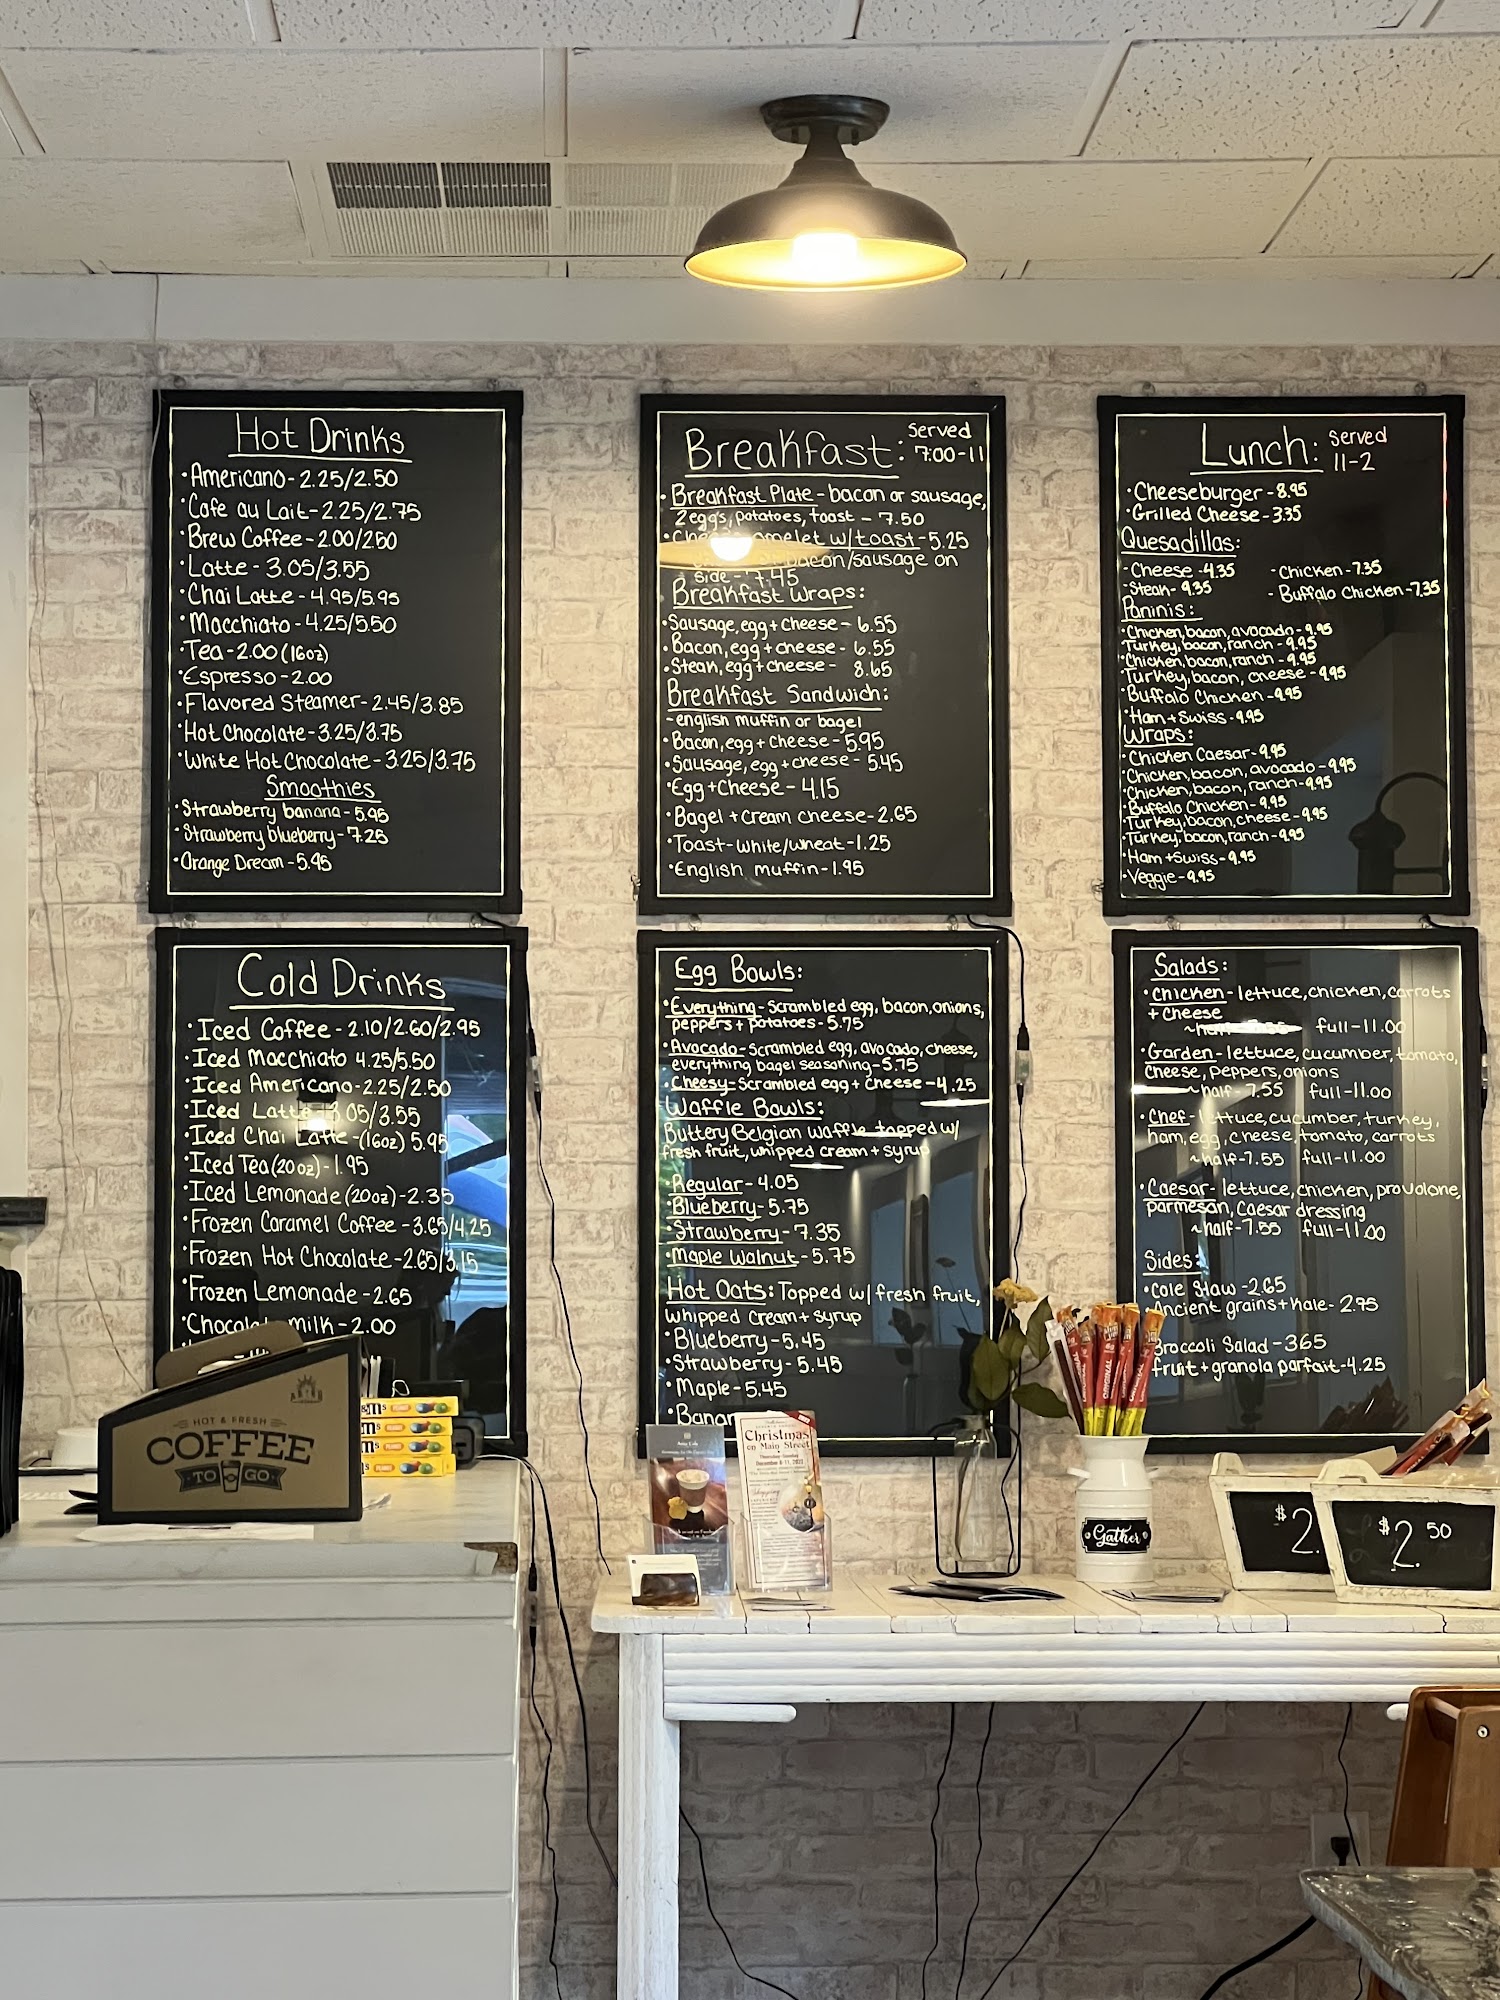 Hot Drinks
·Americano-2.25/2.50
·Cafe au Lait-2.25/2.75
·Brew Coffee-2.00/2.50
·Latte-3.05/3.55
·Chai Latte-4.95/5.95
·Macchiato-4.25/5.50
·Tea-2.00(16oz)
·Espresso-2.00
·Flavored Steamer-2.45/3.85
·Hot Chocolate-3.25/3.75
·White Hot Chocolate-3.25/3.75
Smoothies
·Strawberry banana-5.95
·Strawberry blueberry-7.25
·Orange Dream-5.95
Breakfast: Served
7:00-11
·Breakfast Plate-bacon or sausage,
2egg's, potatoes, toast-7.50
omelet w/toast-5.25
bacon/sausage on
side-7.45
Breakfast Wraps:
·Sausage, egg+cheese-6.55
·Bacon, egg+cheese-6.55
·Steak, egg+cheese-8.65
Breakfast Sandwich:
-english muffin or bagel
·Bacon, egg+cheese-5.95
·Sausage, egg+cheese-5.45
·Egg+Cheese-4.15
·Bagel+cream cheese-2.65
·Toast-white/wheat-1.25
·English muffin-1.95
Lunch: Served
11-2
·Cheeseburger-8.95
·Grilled Cheese-3.35
Quesadillas:
-Cheese-4.35 -Chicken-7.35
-Steak-9.35 -Buffalo Chicken-7.35
Paninis:
·Chicken, bacon, avocado-9.95
·Turkey, bacon, ranch-9.95
·Chicken, bacon, ranch-9.95
·Turkey, bacon, cheese-9.95
·Buffalo Chicken-9.95
·Ham+Swiss-9.95
Wraps:
·Chicken Caesar-9.95
·Chicken, bacon, avocado-9.95
·Chicken, bacon, ranch-9.95
·Buffalo Chicken-9.95
·Turkey, bacon, cheese-9.95
·Turkey, bacon, ranch-9.95
·Ham+Swiss-9.95
·Veggie-9.95
Cold Drinks
·Iced Coffee-2.10/2.60/2.95
·Iced Macchiato 4.25/5.50
·Iced Americano-2.25/2.50
·Iced Latte 3.05/3.55
·Iced Chai Latte-(16oz) 5.95
·Iced Tea(20oz)-1.95
·Iced Lemonade(20oz)-2.35
·Frozen Caramel Coffee-3.65/4.25
·Frozen Hot Chocolate-2.65/3.15
·Frozen Lemonade-2.65
·Chocolate milk-2.00
Egg Bowls:
·Everything-Scrambled egg, bacon, onions,
peppers+potatoes-5.75
·Avocado-Scrambled egg, avocado, cheese,
everything bagel seasoning-5.75
·Cheesy-Scrambled egg+cheese-4.25
Waffle Bowls:
Buttery Belgian Waffle topped w/
fresh fruit, whipped cream+syrup
·Regular-4.05
·Blueberry-5.75
·Strawberry-7.35
·Maple Walnut-5.75
Hot Oats: Topped w/ fresh fruit,
whipped cream+syrup
·Blueberry-5.45
·Strawberry-5.45
·Maple-5.45
Salads:
·Chicken-lettuce, chicken, carrots
+cheese
~half full-11.00
·Garden-lettuce, cucumber, tomato,
cheese, peppers, onions
~half-7.55 full-11.00
·Chef-lettuce, cucumber, turkey,
ham, egg, cheese, tomato, carrots
~half-7.55 full-11.00
·Caesar-lettuce, chicken, provolone,
parmesan, Caesar dressing
~half-7.55 full-11.00
Sides:
·Cole Slaw-2.65
·Ancient grains+kale-2.95
Broccoli Salad-3.65
fruit+granola parfait-4.25
HOT & FRESH
COFFEE
TO GO
Christmas
on Main Street
Gather
$2.
$2.50